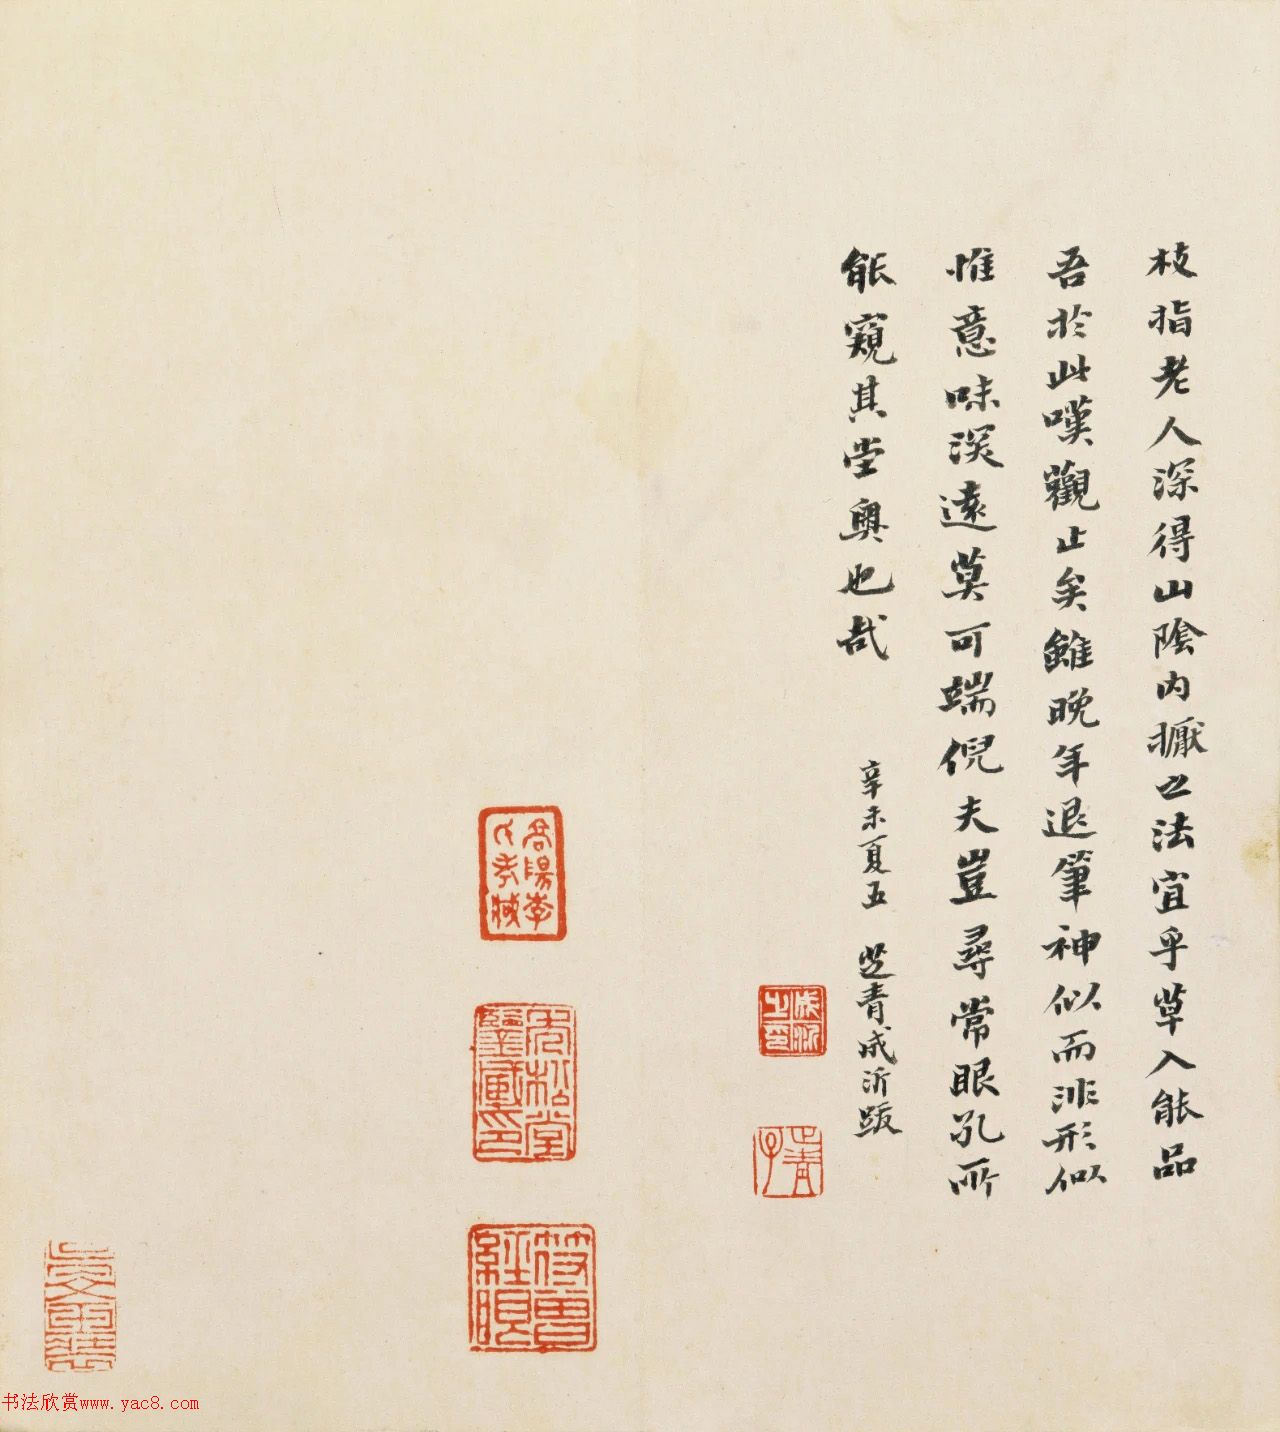 枝指老人深得山陰內擫之法宜乎草入能品
吾於此嘆觀止矣雖晚年退筆神似而非形似
惟意味深遠莫可端倪夫豈尋常眼孔所
能窺其堂奧也哉
辛未夏五 芷青成沂跋
成沂之印
符曾經眼
书法欣赏www.yac8.com